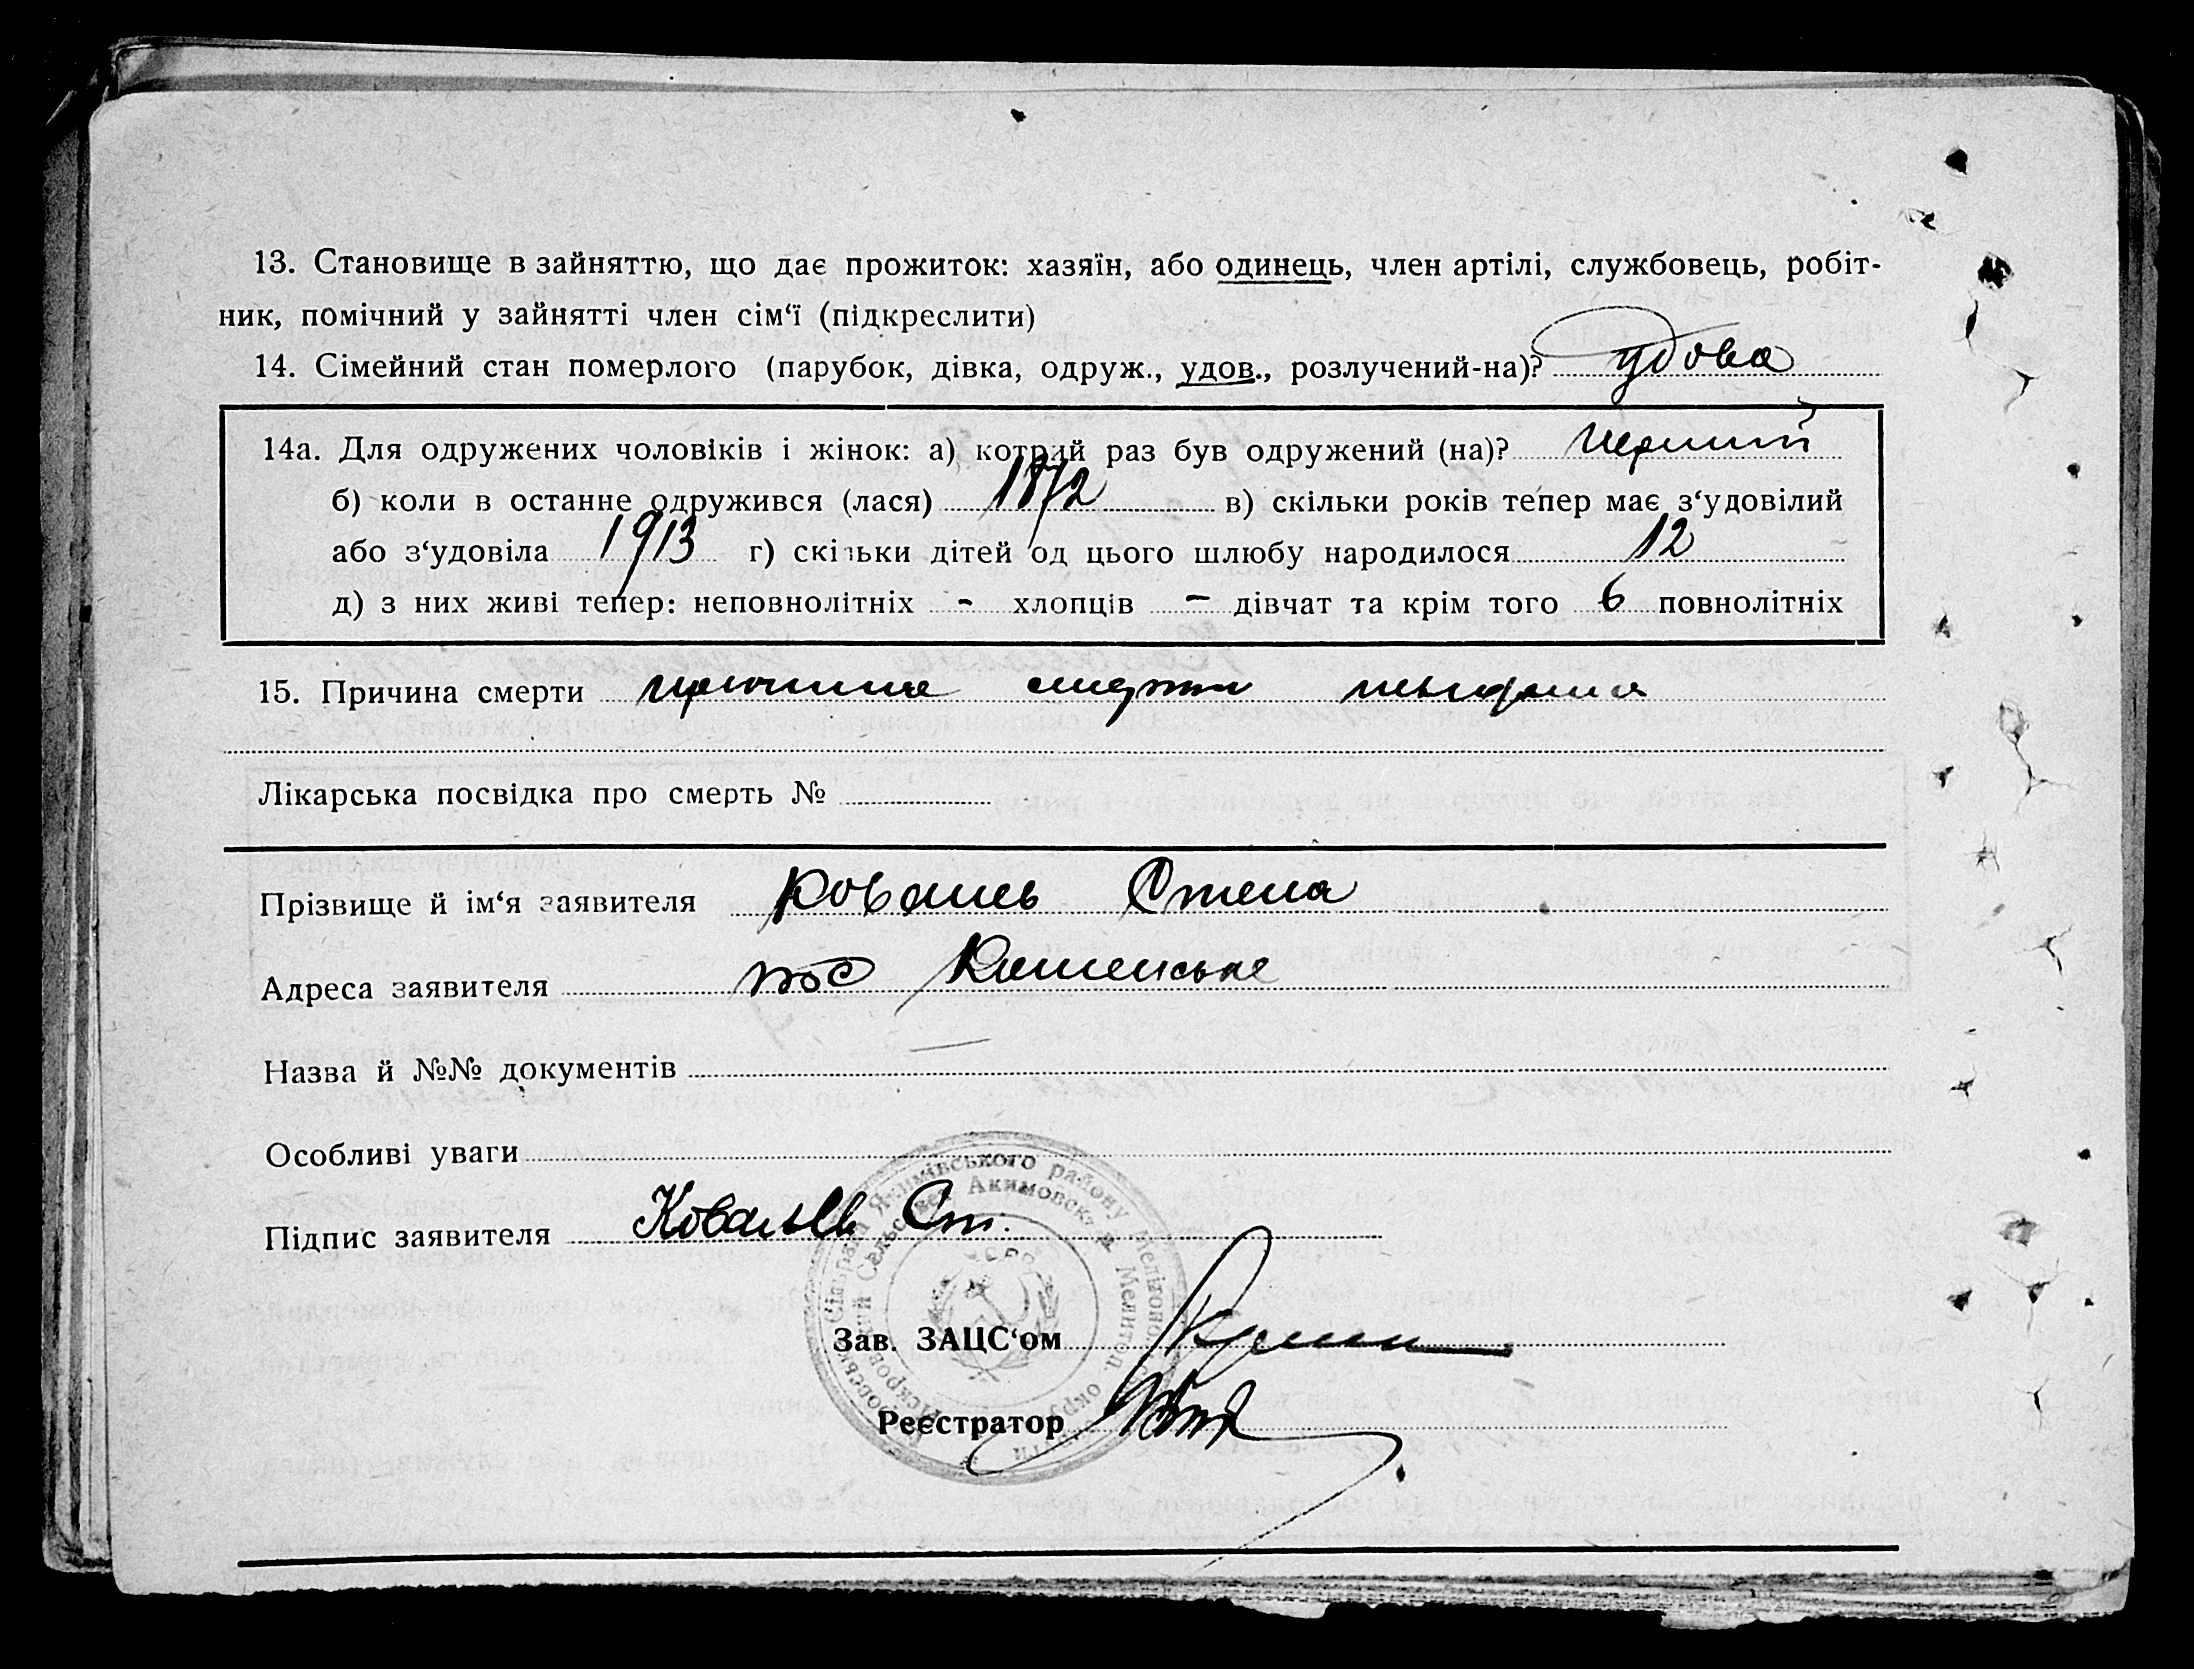 13. Становище в зайняттю, що дає прожиток: хазяїн, або одинець, член артілі, службовець, робіт-
ник, помічний у зайнятті член сім‘ї (підкреслити)
14. Сімейний стан померлого (парубок, дівка, одруж., удов., розлучений-на)? удова
14а. Для одружених чоловіків і жінок: а) котрий раз був одружений (на)? перший
б) коли в останнє одружився (лася) 1872 в) скільки років тепер має з‘удовілий
або з‘удовіла 1913 г) скільки дітей од цього шлюбу народилося 12
д) з них живі тепер: неповнолітніх - хлопців - дівчат та крім того 6 повнолітніх
15. Причина смерти причина смерти
Лікарська посвідка про смерть №
Прізвище й ім‘я заявителя Ковалив Степа
Адреса заявителя пос
Назва й №№ документів —
Особливі уваги
Підпис заявителя Ковальв Ст.
Якимівського району
Акимовск.
Зав. ЗАЦС‘ом
Реєстратор